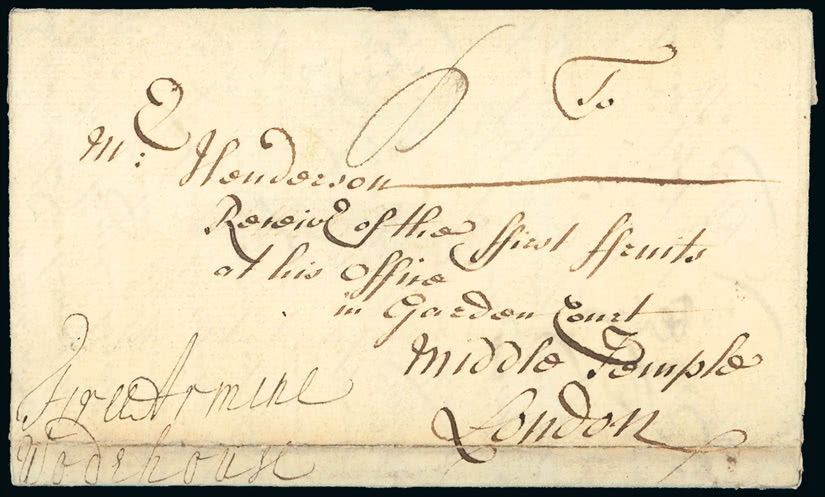 To
Mr: Henderson
Receivr of the ffirst ffruits
at his Office
in Garden Court
Middle Temple
London
Free Armine
Wodehouse